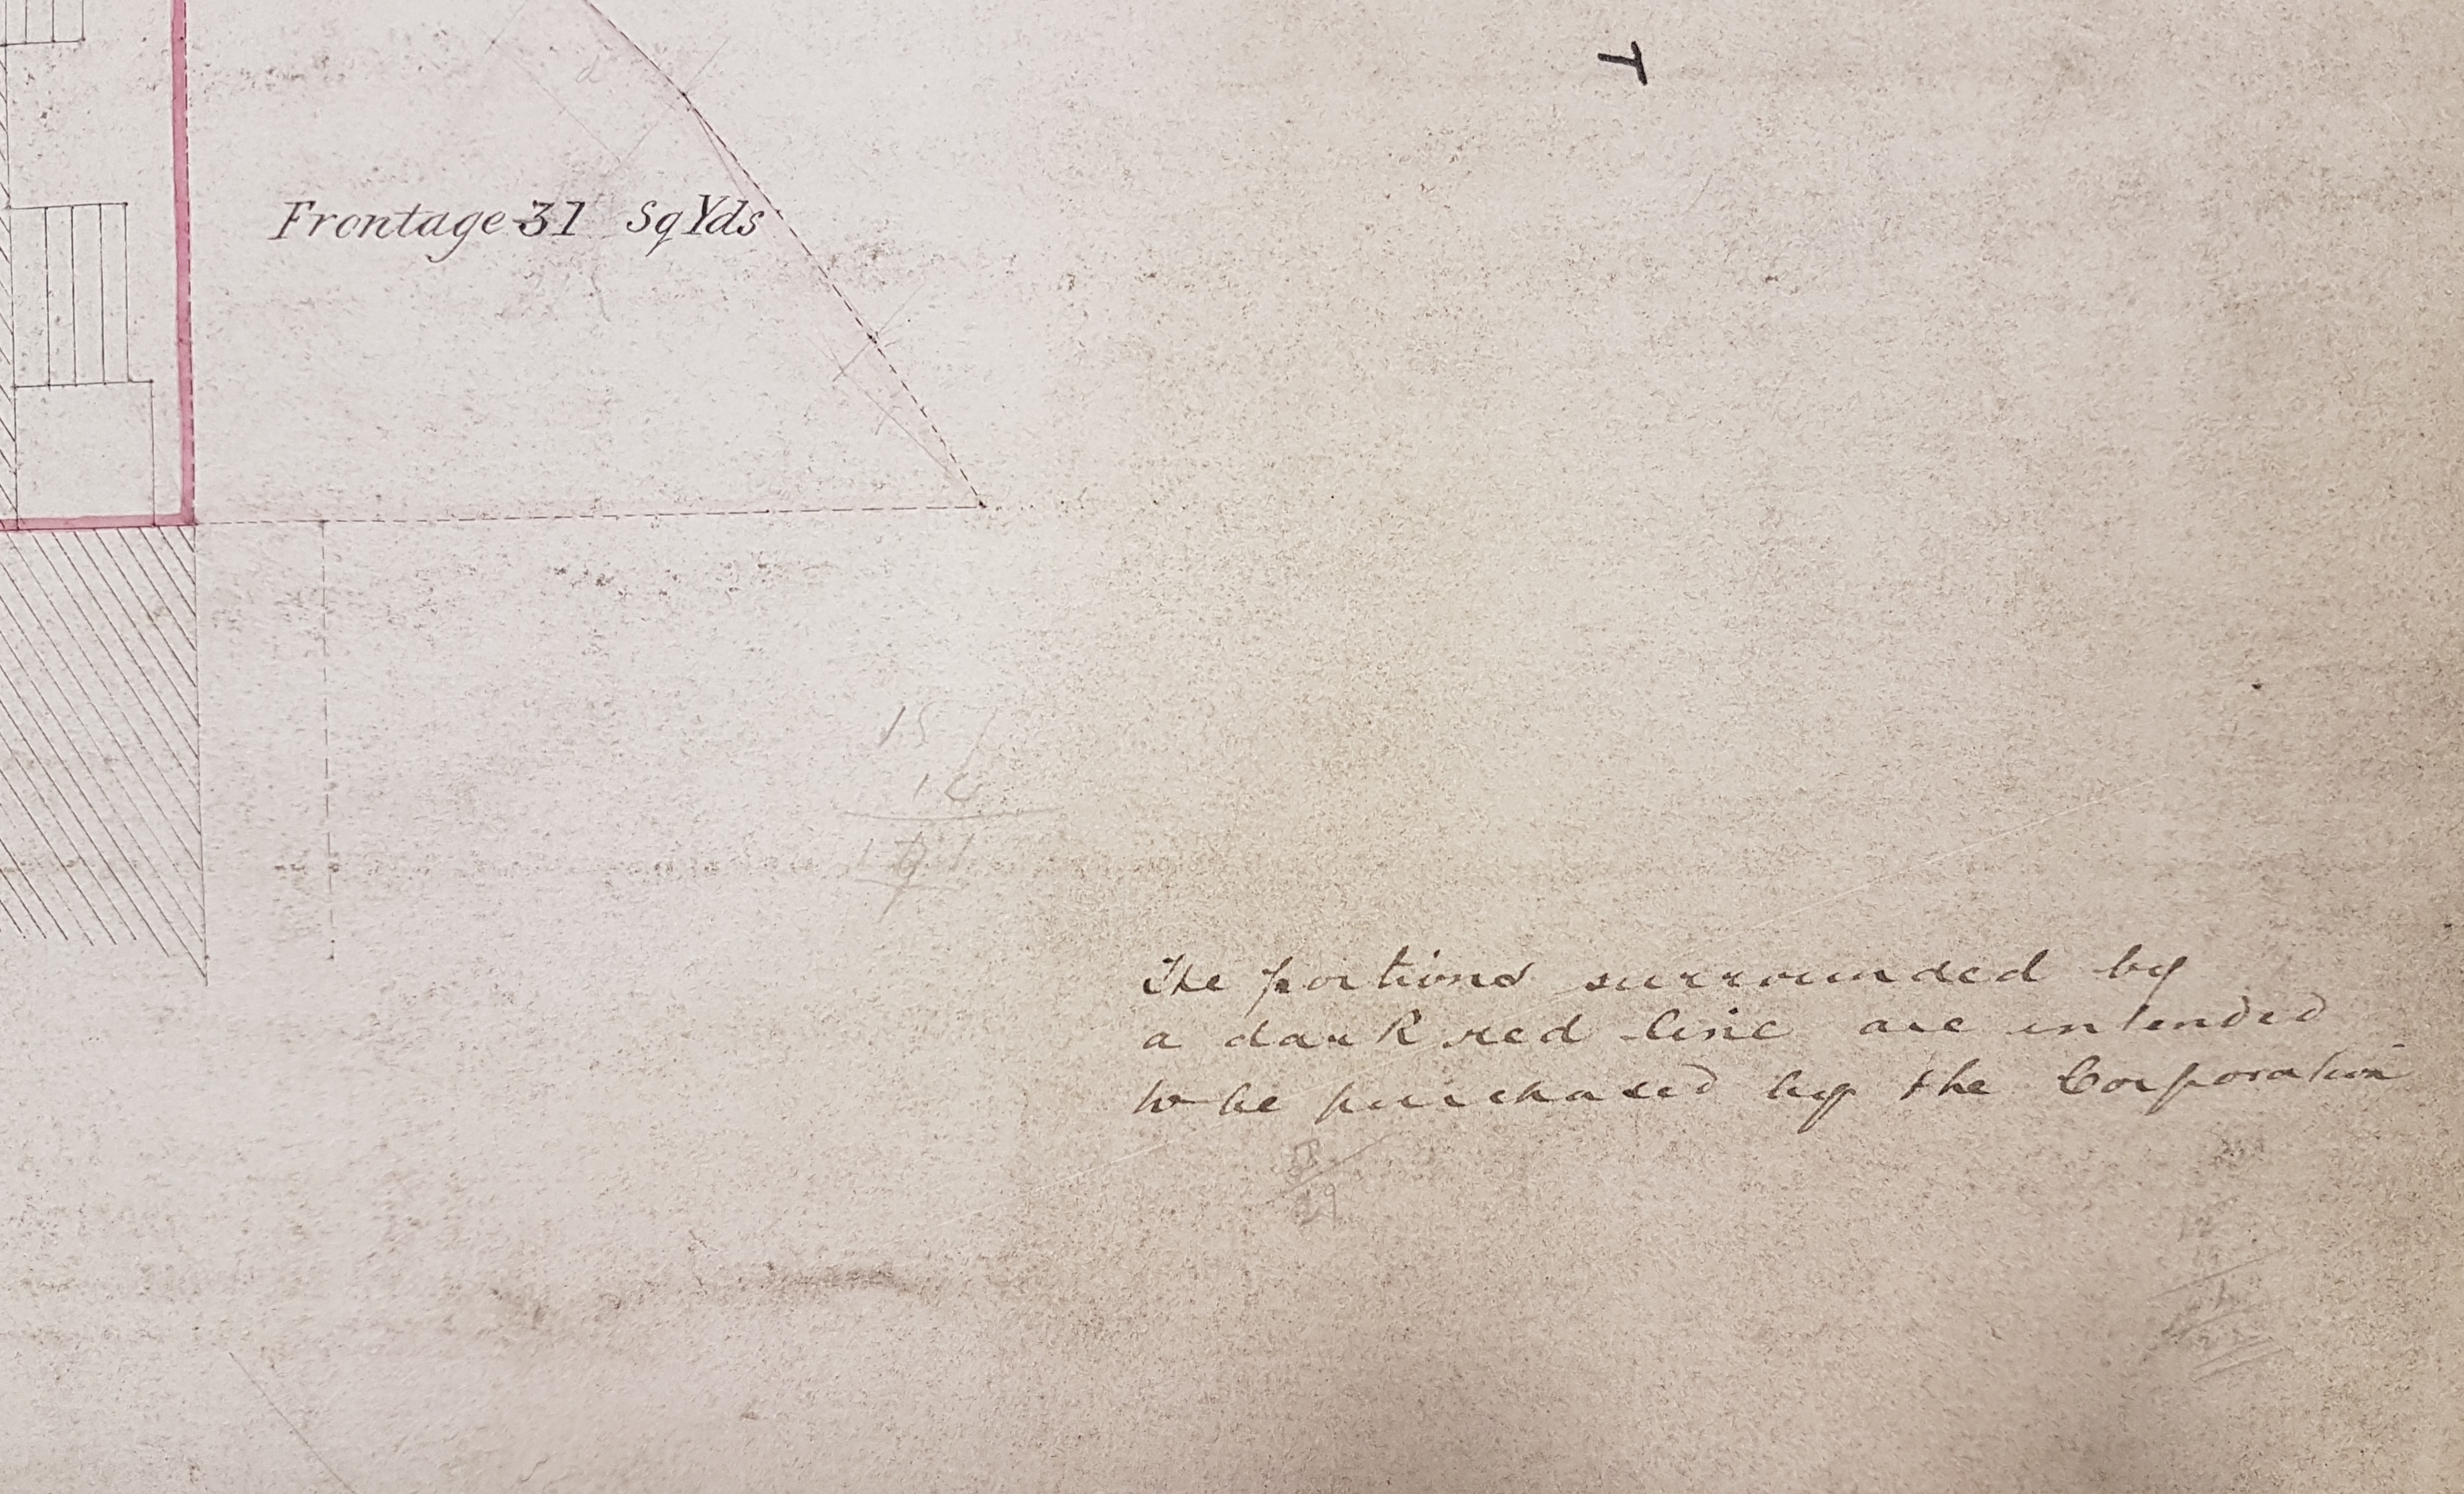 T
Frontage 31 Sq Yds
The portions surrounded by
a dark red line are intended
to be purchased by the Corporation